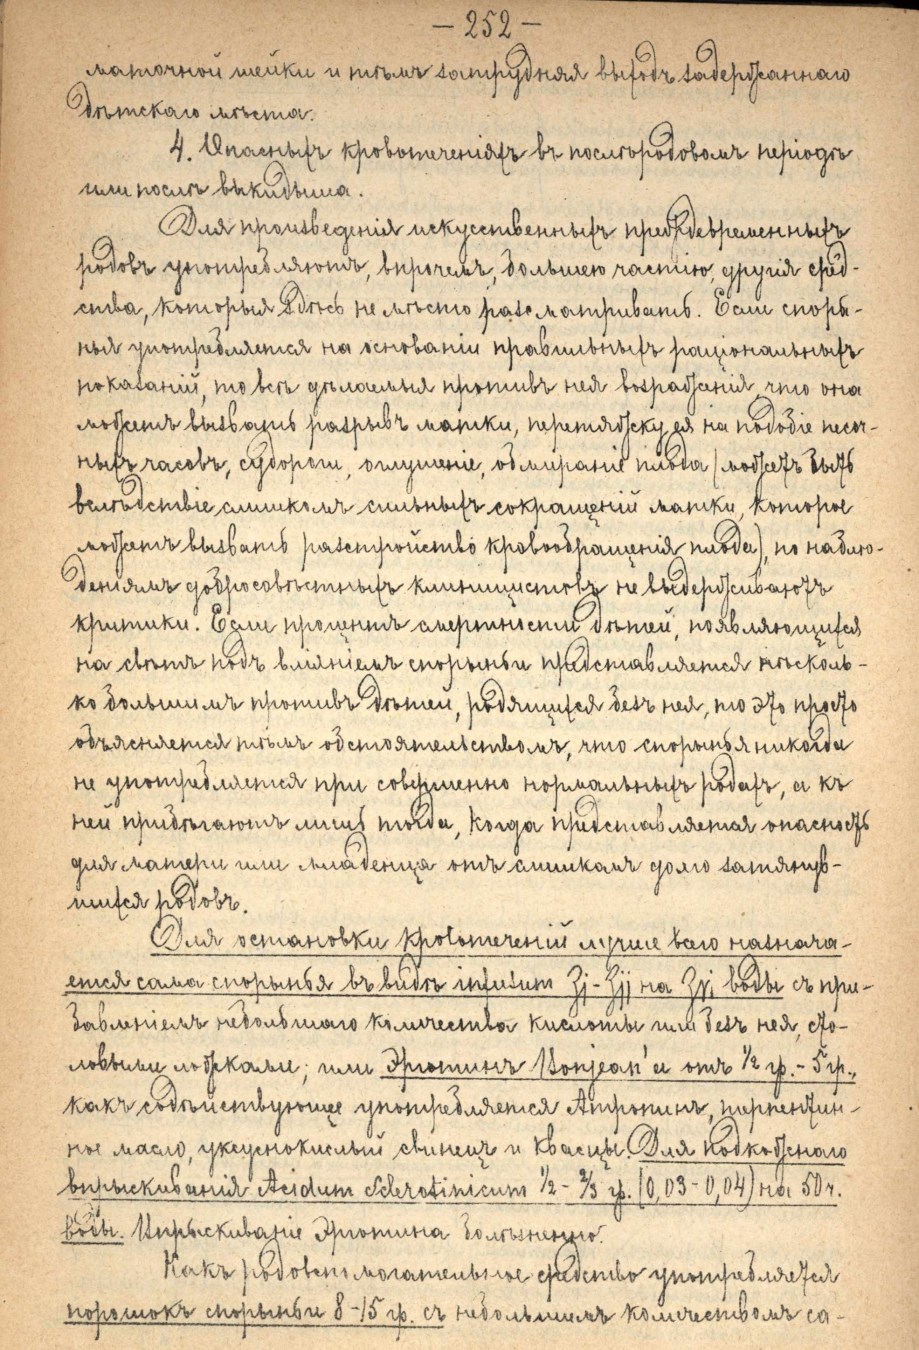 — 252 —
маточной шейки и тѣмъ затрудняя выходъ задержаннаго
дѣтскаго мѣста.
4. Опасныхъ кровотеченіяхъ въ послѣродовомъ періодѣ
или послѣ выкидыша.
Для произведенія искусственныхъ преждевременныхъ
родовъ употребляютъ, впрочемъ, большею частію, другія сред-
ства, которыя здѣсь не мѣсто разсматривать. Если споры-
нья употребляется на основаніи правильныхъ раціональныхъ
показаній, то всѣ дѣлаемыя противъ нея возраженія, что она
можетъ вызвать разрывъ матки, перетяжку ея на подобіе песоч-
ныхъ часовъ, судороги, оглушеніе, обмираніе плода (можетъ быть
вслѣдствіе слишкомъ сильныхъ сокращеній матки, которое
можетъ вызвать разстройство кровообращенія плода), по наблю-
деніямъ добросовѣстныхъ клиницистовъ не выдерживаютъ
критики. Если процентъ смертности дѣтей, появляющихся
на свѣтъ подъ вліяніемъ спорыньи представляется нѣсколь-
ко большимъ противъ дѣтей, родящихся безъ нея, то это просто
объясняется тѣмъ обстоятельствомъ, что спорынья никогда
не употребляется при совершенно нормальныхъ родахъ, а къ
ней прибѣгаютъ лишь тогда, когда представляется опасность
для матери или младенца отъ слишкамъ долго затянув-
шихся родовъ.
Для остановки кровотеченій лучше всего назнача-
ется сама спорынья въ видѣ infusum ʒj - ʒjj на ʒvj воды съ при-
бавленіемъ небольшаго количества кислоты или безъ нея, сто-
ловыми ложками; или Эрготинъ Bonjean'а отъ ½ гр. - 5 гр.,
какъ содѣйствующее употребляется Атропинъ, терпентин-
ное масло, уксуснокислый свинецъ и квасцы. Для подкожнаго
впрыскиванія Acidum Sclerotinicum ½ - ⅔ гр. (0,03 - 0,04) на 50 ч.
воды. Впрыскиваніе Эрготина болѣзненно.
Какъ родовспомогательное средство употребляется
порошокъ спорыньи 8 - 15 гр. съ небольшимъ количествомъ са-